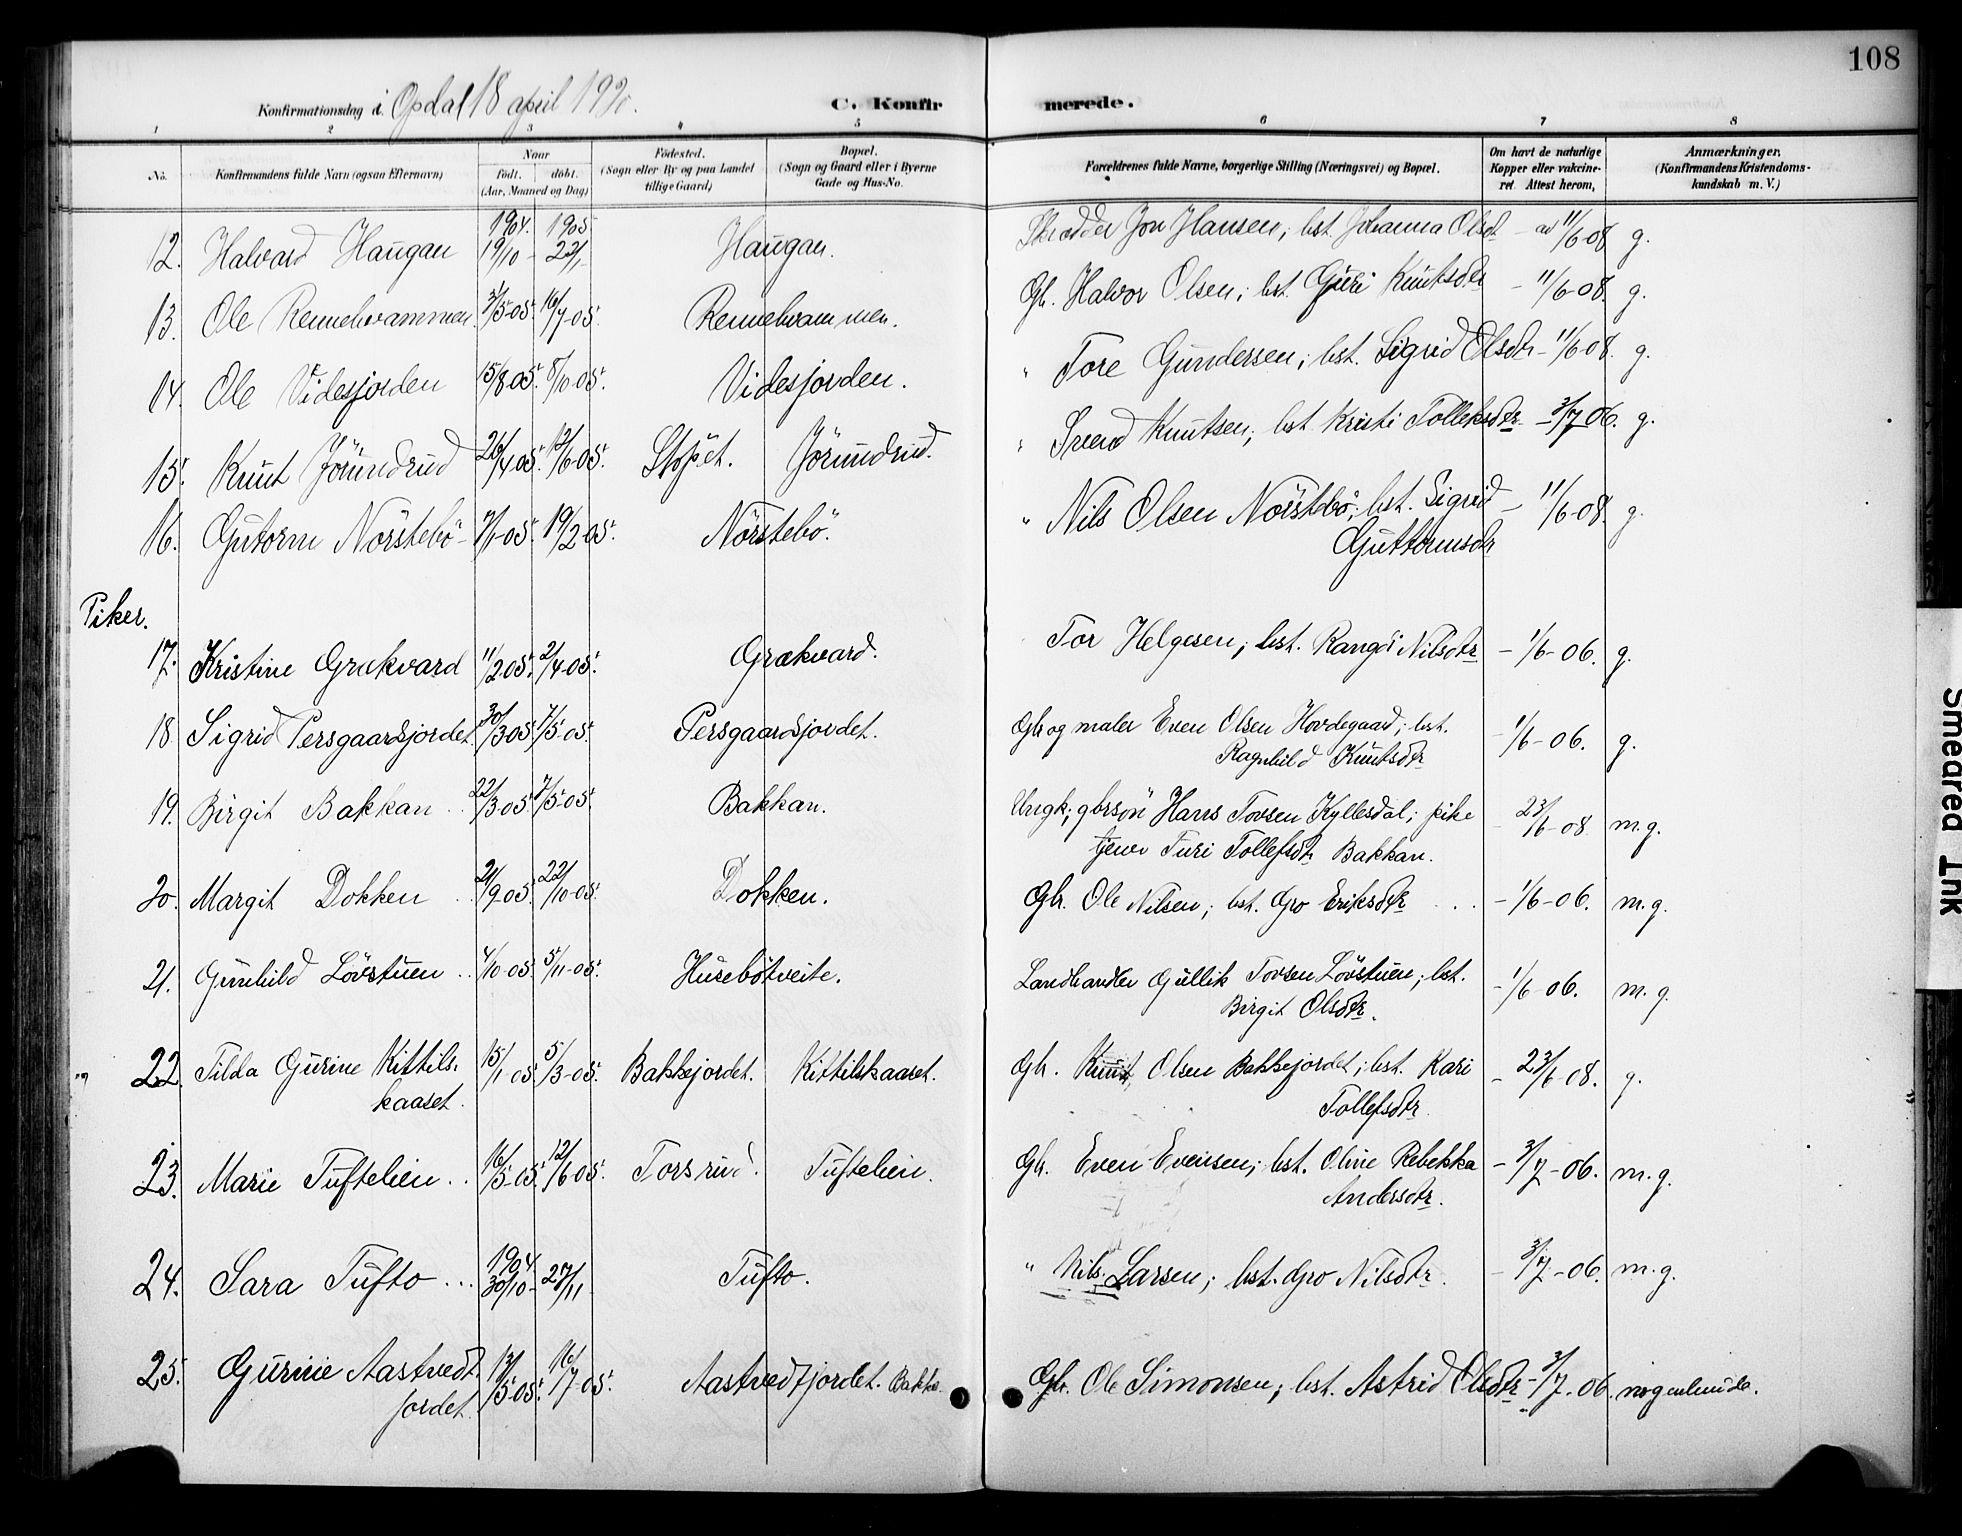 108
Konfirmationsdag i Opdal 18 april 1920.
C. Konfirmerede.
1 2 3 4 5 6 7 8
No.
Konfirmandens fulde Navn (ogsaa Efternavn)
Naar
født. døbt.
(Aar, Maaned og Dag)
Fødested.
(Sogn eller By og paa Landet
tillige Gaard)
Bopæl.
(Sogn og Gaard eller i Byerne
Gade og Hus-No.
Forældrenes fulde Navne, borgerlige Stilling (Næringsvei) og Bopæl.
Om havt de naturlige
Kopper eller vakcine-
ret. Attest herom,
Anmærkninger.
(Konfirmandens Kristendoms-
kundskab m. V.)
1904. 1905
12. Halvard Haugan 19/10 - 22/1- Haugan. Skrædder Jon Hansen; hst. Johanna Olsdt - 11/6-08 g.
13. Ole Rennehvammen 3/5-05. 16/7-05. Rennehvammen. Gbr. Halvor Olsen; hst. Guri Knutsdtr - 11/6-08. g.
14. Ole Videsjorden 15/8 05. 8/10-05. Videsjorden. " Tore Gundersen; hst. Sigrid Olsdtr - 11/6-08. g.
15. Knut Jörundrud 26/4 05. 12/6-05. Jörundrud. " Svend Knutsen; hst. Kristi Tollefsdtr - 3/7 06. g.
16. Gutorm Nörstebö - 7/1-05. 19/2 05. Nörstebö. " Nils Olsen Nörstebö; hst. Sigrid - 11/6-08. g.
Guttormsdtr
Piker.
17. Kristine Grækvard 11/2 05. 2/4-05. Grækvard. Tor Helgesen; hst. Rangdi Nilsdtr - 1/6-06. g.
18. Sigrid Persgaardsjordet 30/3 05. 7/5-05. Persgaardsjordet. Gbr og maler Even Olsen Hovdegaard; hst. - 1/6-06. g.
Ragnhild Knutsdtr
19. Birgit Bakkan .. 22/3 05. 7/5-05. Bakkan. Ungk; gbrsön Hans Torsen Kyllesdal; pike - 23/6-08 m.g.
tjener Turi Tollefsdtr Bakkan.
20. Margit Dokken .. 21/9 05. 22/10-05. Dokken. Gbr. Ole Nilsen; hst. Gro Eriksdtr ... - 1/6-06. m.g.
21. Gunhild Lövstuen .. 4/10-05. 5/11-05. Husebötveite. Landhandler Gullik Torsen Lövstuen; hst. - 1/6-06. m.g.
Birgit Olsdtr.
22. Tilda Gurine Kittils- 15/1 05. 5/3-05. Bakkejordet. Kittilskaaset. Gbr. Knut Olsen Bakkejordet; hst. Kari - 23/6-08. g.
kaaset. Tollefsdtr.
23. Marie Tuftelien .. 16/5-05. 12/6 05. Torsrud. Tuftelien. Gbr. Even Evensen; hst. Oline Rebekka - 3/7-06. m.g.
Andersdtr.
1904.
24. Sara Tufto ... 30/10- 27/11 Tufto. " Nils Larsen; hst. Gro Nilsdtr. - 3/7-06. m.g.
25. Gurine Aastvedt- 13/5-05. 16/7-05. Aastvedtjordet. Gbr. Ole Simonsen; hst. Astrid Olsdtr - 3/7-06. nogenlunde.
jordet.
Smeared Ink